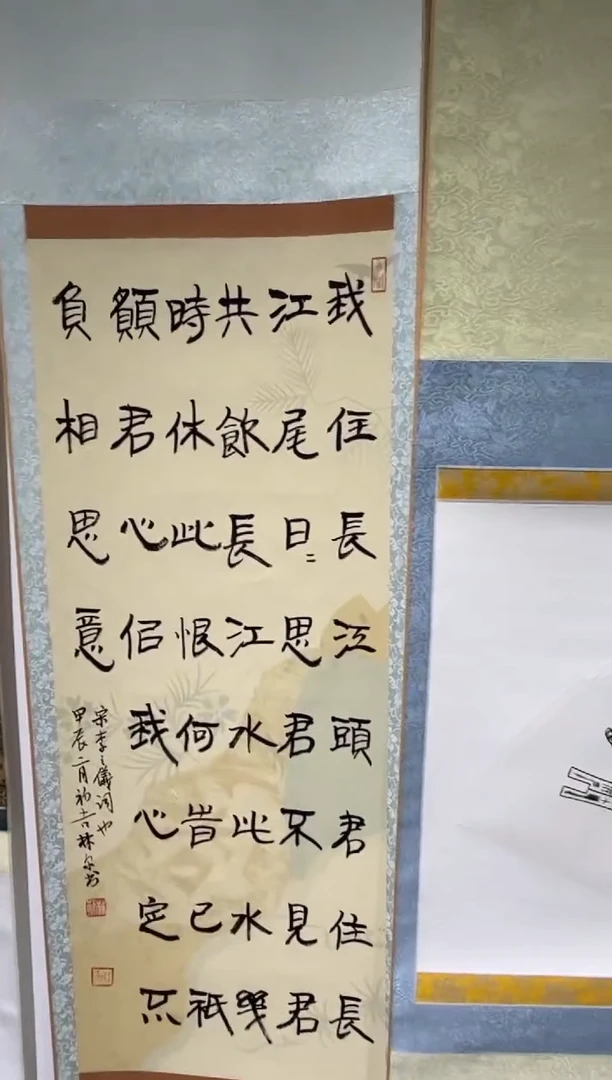 我住長江頭君住長
江尾日〻思君不見君
共飲長江水此水幾
時休此恨何旹已祗
願君心佀我心定不
負相思意
宋李之儀詞也
甲辰二月初吉林